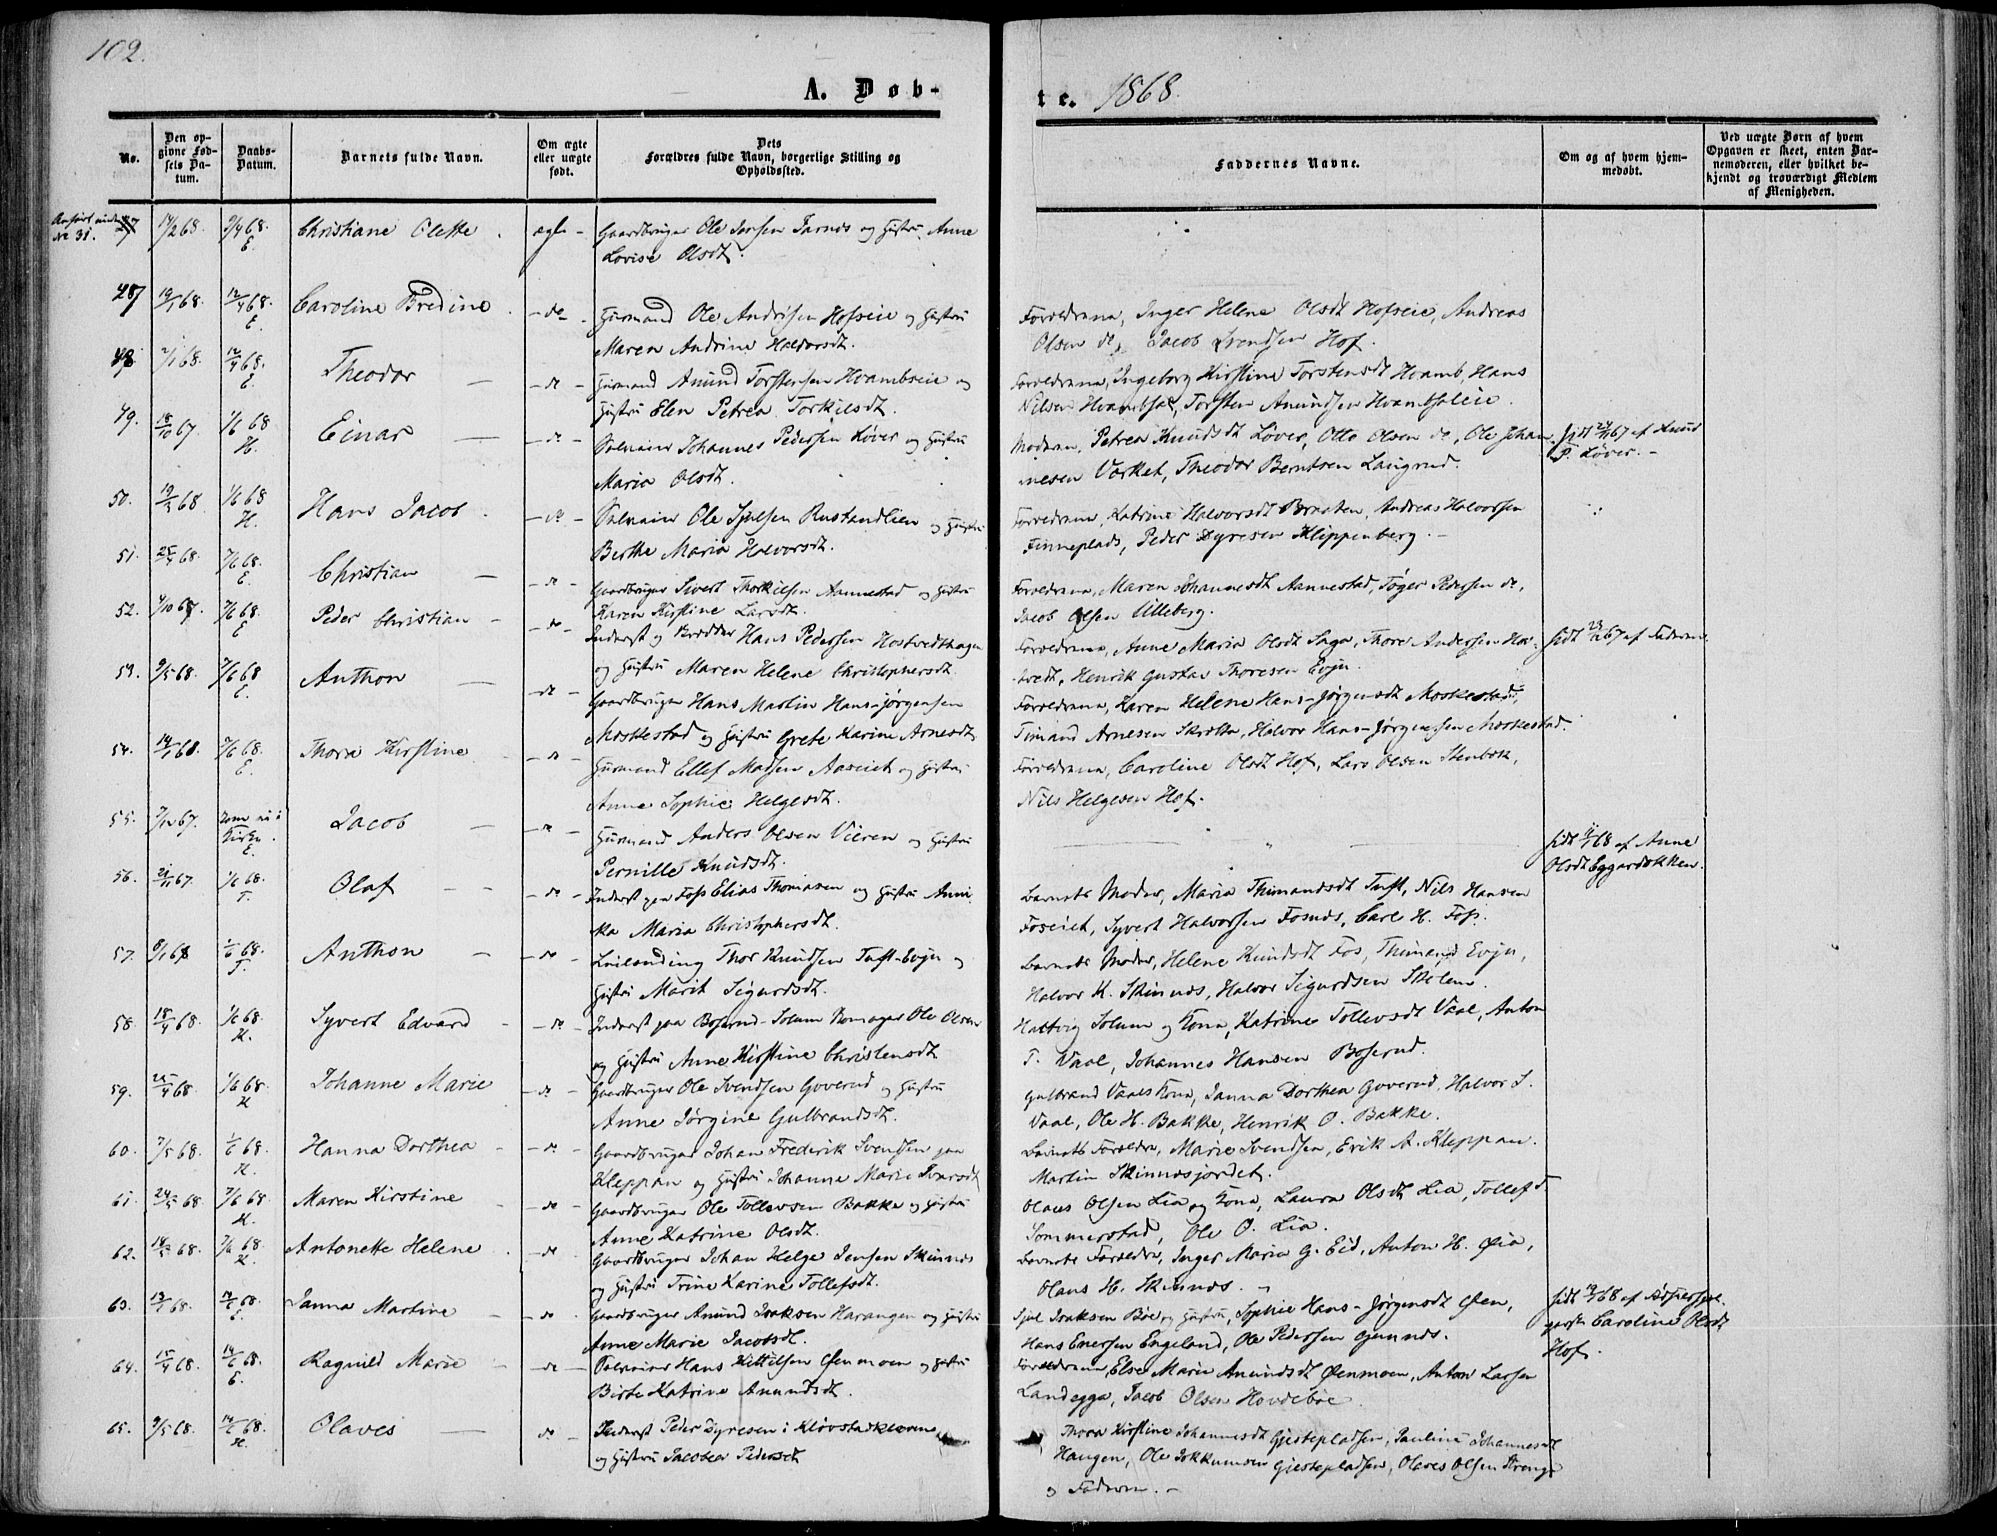 102.
A. Døb-
te. 1868.
No.
Den op-
givne Fød-
sels Da-
tum.
Daabs-
Datum.
Barnets fulde Navn.
Om ægte
eller uægte
født.
Dets
Forældres fulde Navn, borgerlige Stilling og
Opholdssted.
Faddernes Navne.
Om og af hvem hjem-
medøbt.
Ved uægte Børn af hvem
Opgaven er skeet, enten Bar-
nemoderen, eller hvilket be-
kjendt og troværdigt Medlem
af Menigheden.
Anført under
No 31.
Christiane Olette. ægte - Gaardbruger Ole Jensen og Hustru Anne
Lovise Olsdt.
Caroline Bredine. - do - Huusmand Ole Andersen Hofseie og Hustru
Maren Andrine Haldorsdt.
Forældrene, Inger Helene Olsdt Hofseie, Andreas
Olsen do, Jacob Svendsen Hof.
48. Theodor - do - Huusmand Amund Torstensen Hvambseie og
Hustru Elen Petrea Torkilsdt.
Forældrene, Ingeborg Kirstine Torstensdt Hvamb, Hans
Nilsen, Torsten Amundsen
49. 18/10 67. 1/6 68 H. Einar - do - Selveier Johannes Pedersen Løver og Hustru
Maria Olsdt.
Moderen, Petrea Knudsdt Løver, Otto Olsen do, Ole Johan-
nesen Værket, Theodor Berntsen Langrud.
hjdt 67 af Knud
P. Løver. -
50. 1/6 68 H. Hans Jacob. - do - Selveier Ole Rustandlien og Hustru
Berthe Maria Halvorsdt.
Forældrene, Katrine Halvorsdt, Andreas Halvorsen
Finneplads, Peder Dyresen Klippenberg. -
51. 25/4 68. 7/6 68. E. Christian - do - Gaardbruger Sivert Thorkilsen Aannestad og Hustru
Karen Kirstine Larsdt.
Forældrene, Maren Johannesdt Aannestad, Tøger Pedersen do,
Jacob Olsen Ulleberg.
52. 7/6 68. E Peder Christian - do - Inderst og Hans Pedersen Hostvedthagen
og Hustru Maren Helene Christophersdt.
Forældrene, Anne Maria Olsdt, Thore Andersen Ho-
stvedt, Henrik Gustav Thoresen Evju.
hjdt 67 af Faderen.
53. 9/5 68. 7/6 68 E. Anthon - do - Gaardbruger Hans Martin Hans-Jørgensen
Moskestad og Hustru Grete Karine Arnesdt
Forældrene, Karen Helene Hans-Jørgensdt Moskestad,
Timand Arnesen, Halvor Hans-Jørgensen Moskestad.
54. 7/6 68. E. Thora Kirstine - do - Huusmand Ellef Madsen Aaseiet og Hustru
Anne Sophie Helgesdt.
Forældrene, Caroline Olsdt Hof, Lars Olsen Stenbek,
Nils Helgesen Hof.
55. 7/12 67. Kom ei i
Kirken. E. Jacob - do - Huusmand Anders Olsen Vieren og Hustru
Pernille Knudsdt.
hjdt 68 af Anne
Olsdt Eggardbakken.
56. 21/11 67. 1/6 68. T. Olaf - do - Inderst paa Foss Elias Thomasen og Hustru Anni-
ka Maria Christophersdt.
Barnets Moder, Maria Thimandsdt Tuft, Nils Hansen
Foseiet, Syvert Halvorsen Fosnæs, Carl H. Foss.
57. 8/1 68 1/6 68. T. Anthon - do - Leilending Thor Knudsen Tuft-Evju og
Hustru Marit Sigurdsdt.
Barnets Moder, Helene Knudsdt Fos, Thimand Evju,
Halvor K. Skinnes, Halvor Sigurdsen
58. 18/4 68. 1/6 68. H. Syvert Edvard - do - Inderst paa Boserud-Solum Ole Olsen
og Hustru Anne Kirstine Christensdt
Hattvig Solum og Kone, Katrine Tollevsdt Vaal, Anton
T. Vaal, Johannes Hansen Boserud.
59. 25/4 68 1/6 68. H Johanne Marie - do - Gaardbruger Ole Svendsen Goverud og Hustru
Anne Jørgine Gulbrandsdt.
Gulbrand Vaals Kone, Janna Dorthea Goverud, Halvor S.
Vaal, Ole H. Bakke, Henrik O. Bakke.
60. 7/5 68. 1/6 68. H. Hanna Dorthea - do - Gaardbruger Johan Frederik Svendsen paa
Kleppan og Hustru Johanna Marie Ivarsdt
Barnets Forældre, Marie Svendsen, Erik A. Kleppan.
Martin Skinnesjordet.
61. 7/6 68 H. Maren Kirstine - do - Gaardbruger Ole Tollevsen Bakke og Hustru
Anne Katrine Olsdt.
Olaus Olsen Lia og Kone, Laura Olsdt Lia, Tollef T.
Sommerstad, Ole O. Lia.
62. 7/6 68 H. Antonette Helene. - do - Gaardbruger Johan Helge Jensen Skinnes
og Hustru Trine Karine Tollefsdt.
Barnets Forældre, Inger Maria G. Eid, Anton H. Øia,
Olaus H. Skinnes.
63. 14/6 68. E. Janna Martine - do - Gaardbruger Amund Isaksen Harangen og Hustru
Anne Marie Jacobsdt.
Isaksen Bøe og Hustru, Sophie Hans-Jørgensdt Øen,
Hans Enersen Engeland, Ole Pedersen
hjdt 68 af
Caroline Olsdt
Hof.
64. 15/4 68. 14/6 68. E. Ragnild Marie - do - Selveier Hans Kittilsen Øenmoen og Hustru
Birte Katrine Amundsdt.
Forældrene, Else Marie Amundsdt Øenmoen, Anton Larsen
Landegga, Jacob Olsen Hovdebøe.
65. 9/5 68. 14/6 68. H. Olaves - do - Inderst Peder Dyresen i Kløvstadkleven
og Hustru Jacobea Pedersdt
Thora Kirstine Johannesdt Gjestepladsen, Pauline Johannesdt
Haugen, Ole Jokkumsen Gjestepladsen, Olaves Olsen
og Faderen. -